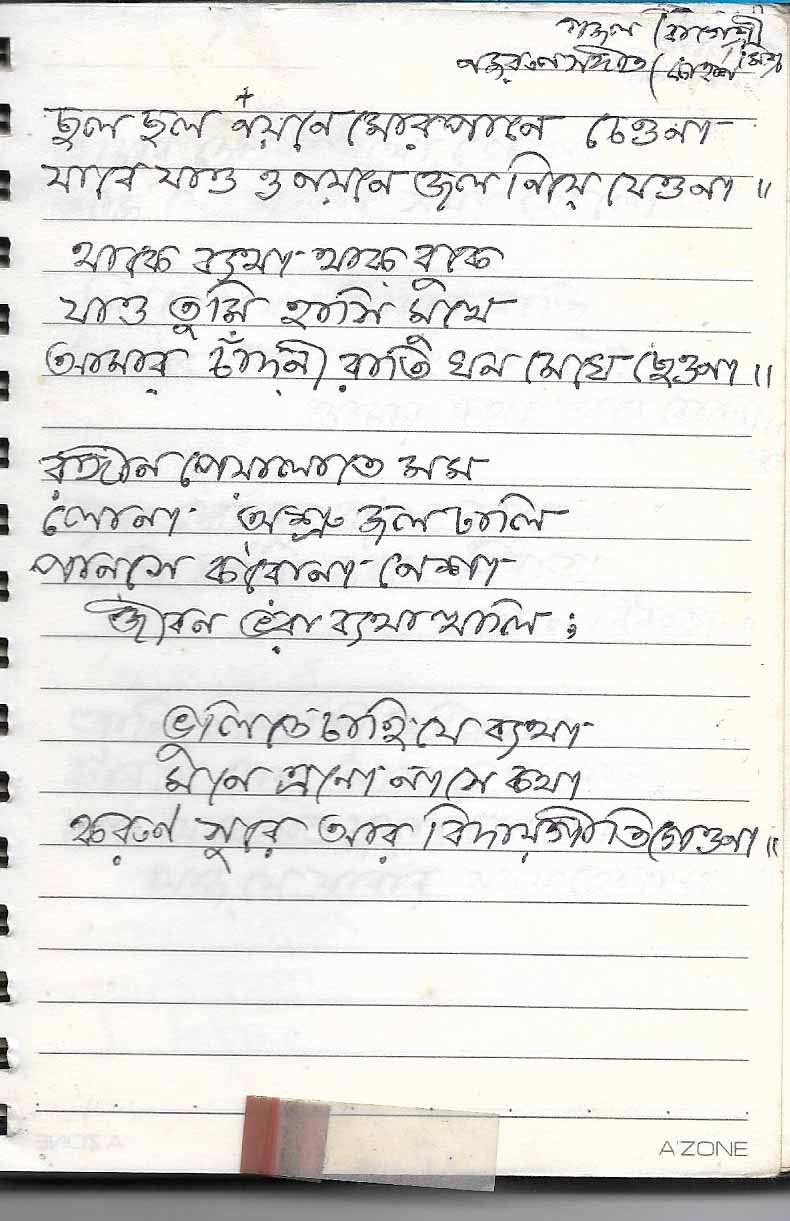 গজল (বাগেশ্রী
নজরুলগীতি (কাহার্বা
+
ছল ছল নয়নে মোর পানে চেওনা
যাবে যাও ও নয়নে জল নিয়ে যেওনা ॥
থাকে ব্যথা থাক বুকে
যাও তুমি হাসি মুখে
আমার চাঁদনী রাতি ঘন মেঘে ছেওনা ॥
রঙ্গীন পেয়ালাতে মম
লোনা অশ্রু জল ঢালি
পানসে করোনা নেশা
জীবন ভরা ব্যথা খালি ;
ভুলিতে চাহি যে ব্যথা
মনে এনো না সে কথা
করুণ সুরে আর বিদায় গীতি গেওনা ॥
A'ZONE